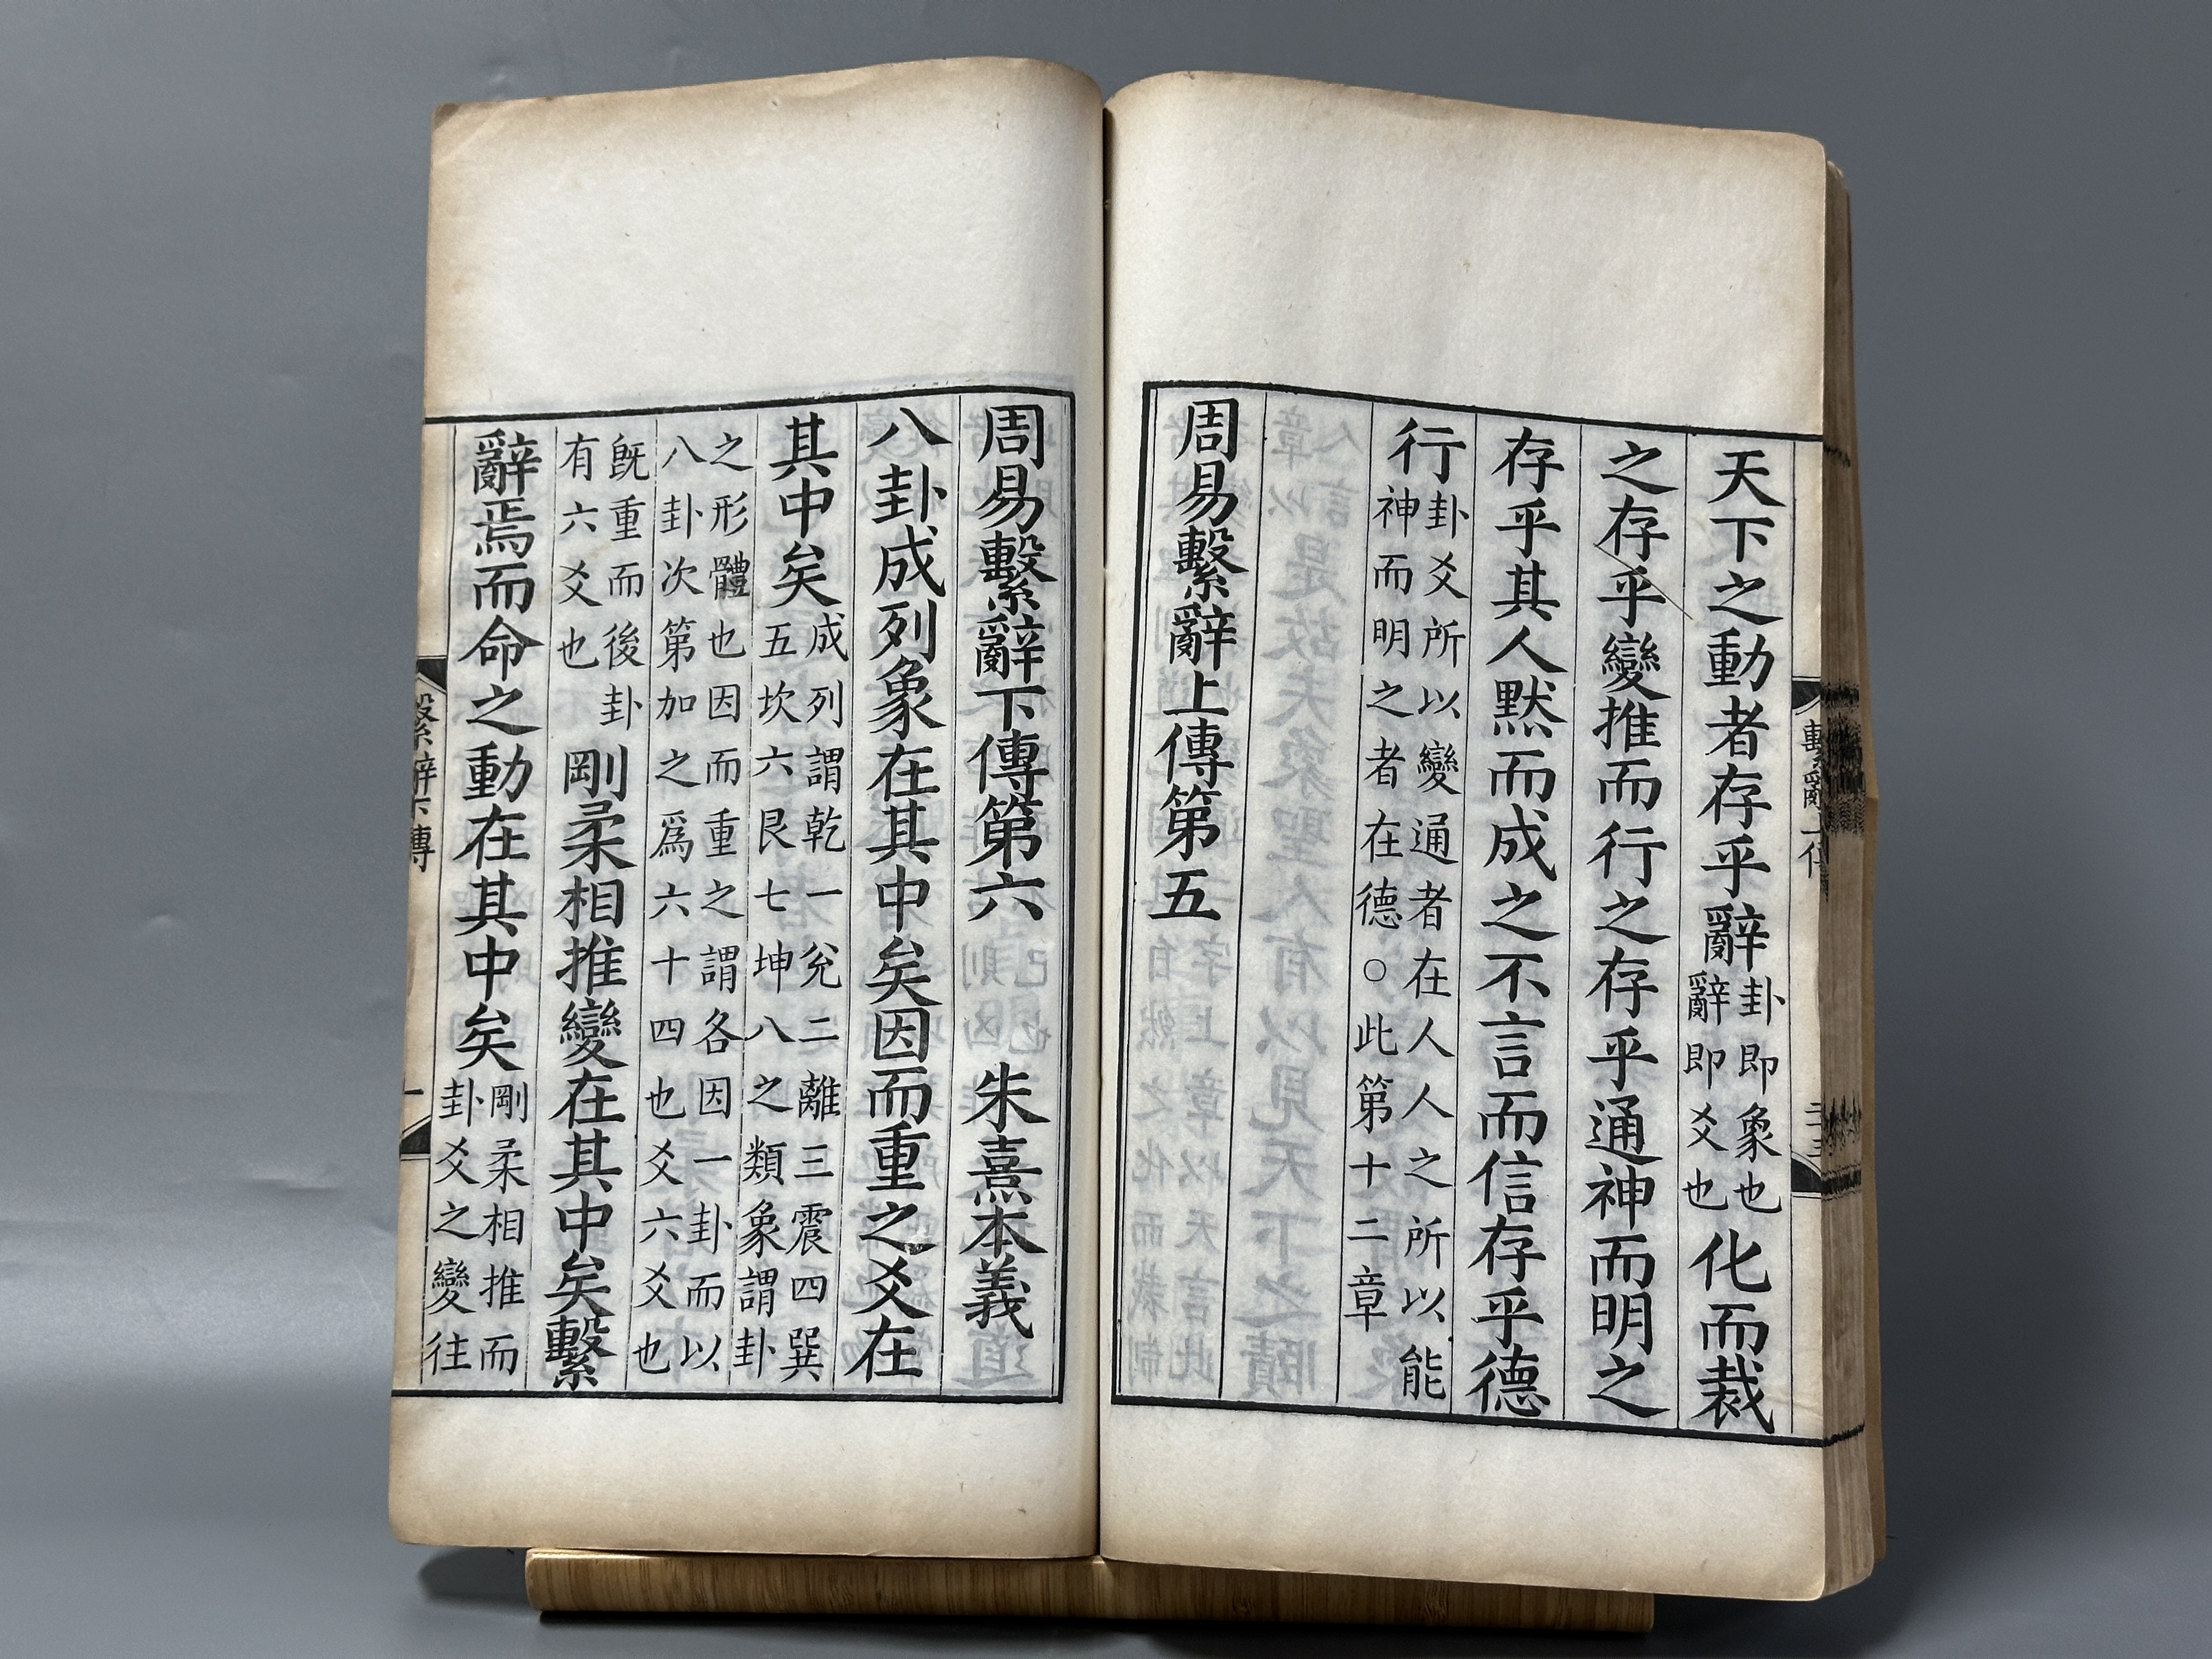 天下之動者存乎辭卦即象也辭即爻也化而裁
之存乎變推而行之存乎通神而明之
存乎其人黙而成之不言而信存乎德
行卦爻所以變通者在人人之所以能神而明之者在德○此第十二章
周易繫辭上傳第五
周易繫辭下傳第六 朱熹本義
八卦成列象在其中矣因而重之爻在
其中矣成列謂乾一兌二離三震四巽五坎六艮七坤八之類象謂卦
之形體也因而重之謂各因一卦而以八卦次第加之爲六十四也爻六爻也
旣重而後卦有六爻也剛柔相推變在其中矣繫
辭焉而命之動在其中矣剛柔相推而卦爻之變往
繫辭下傳